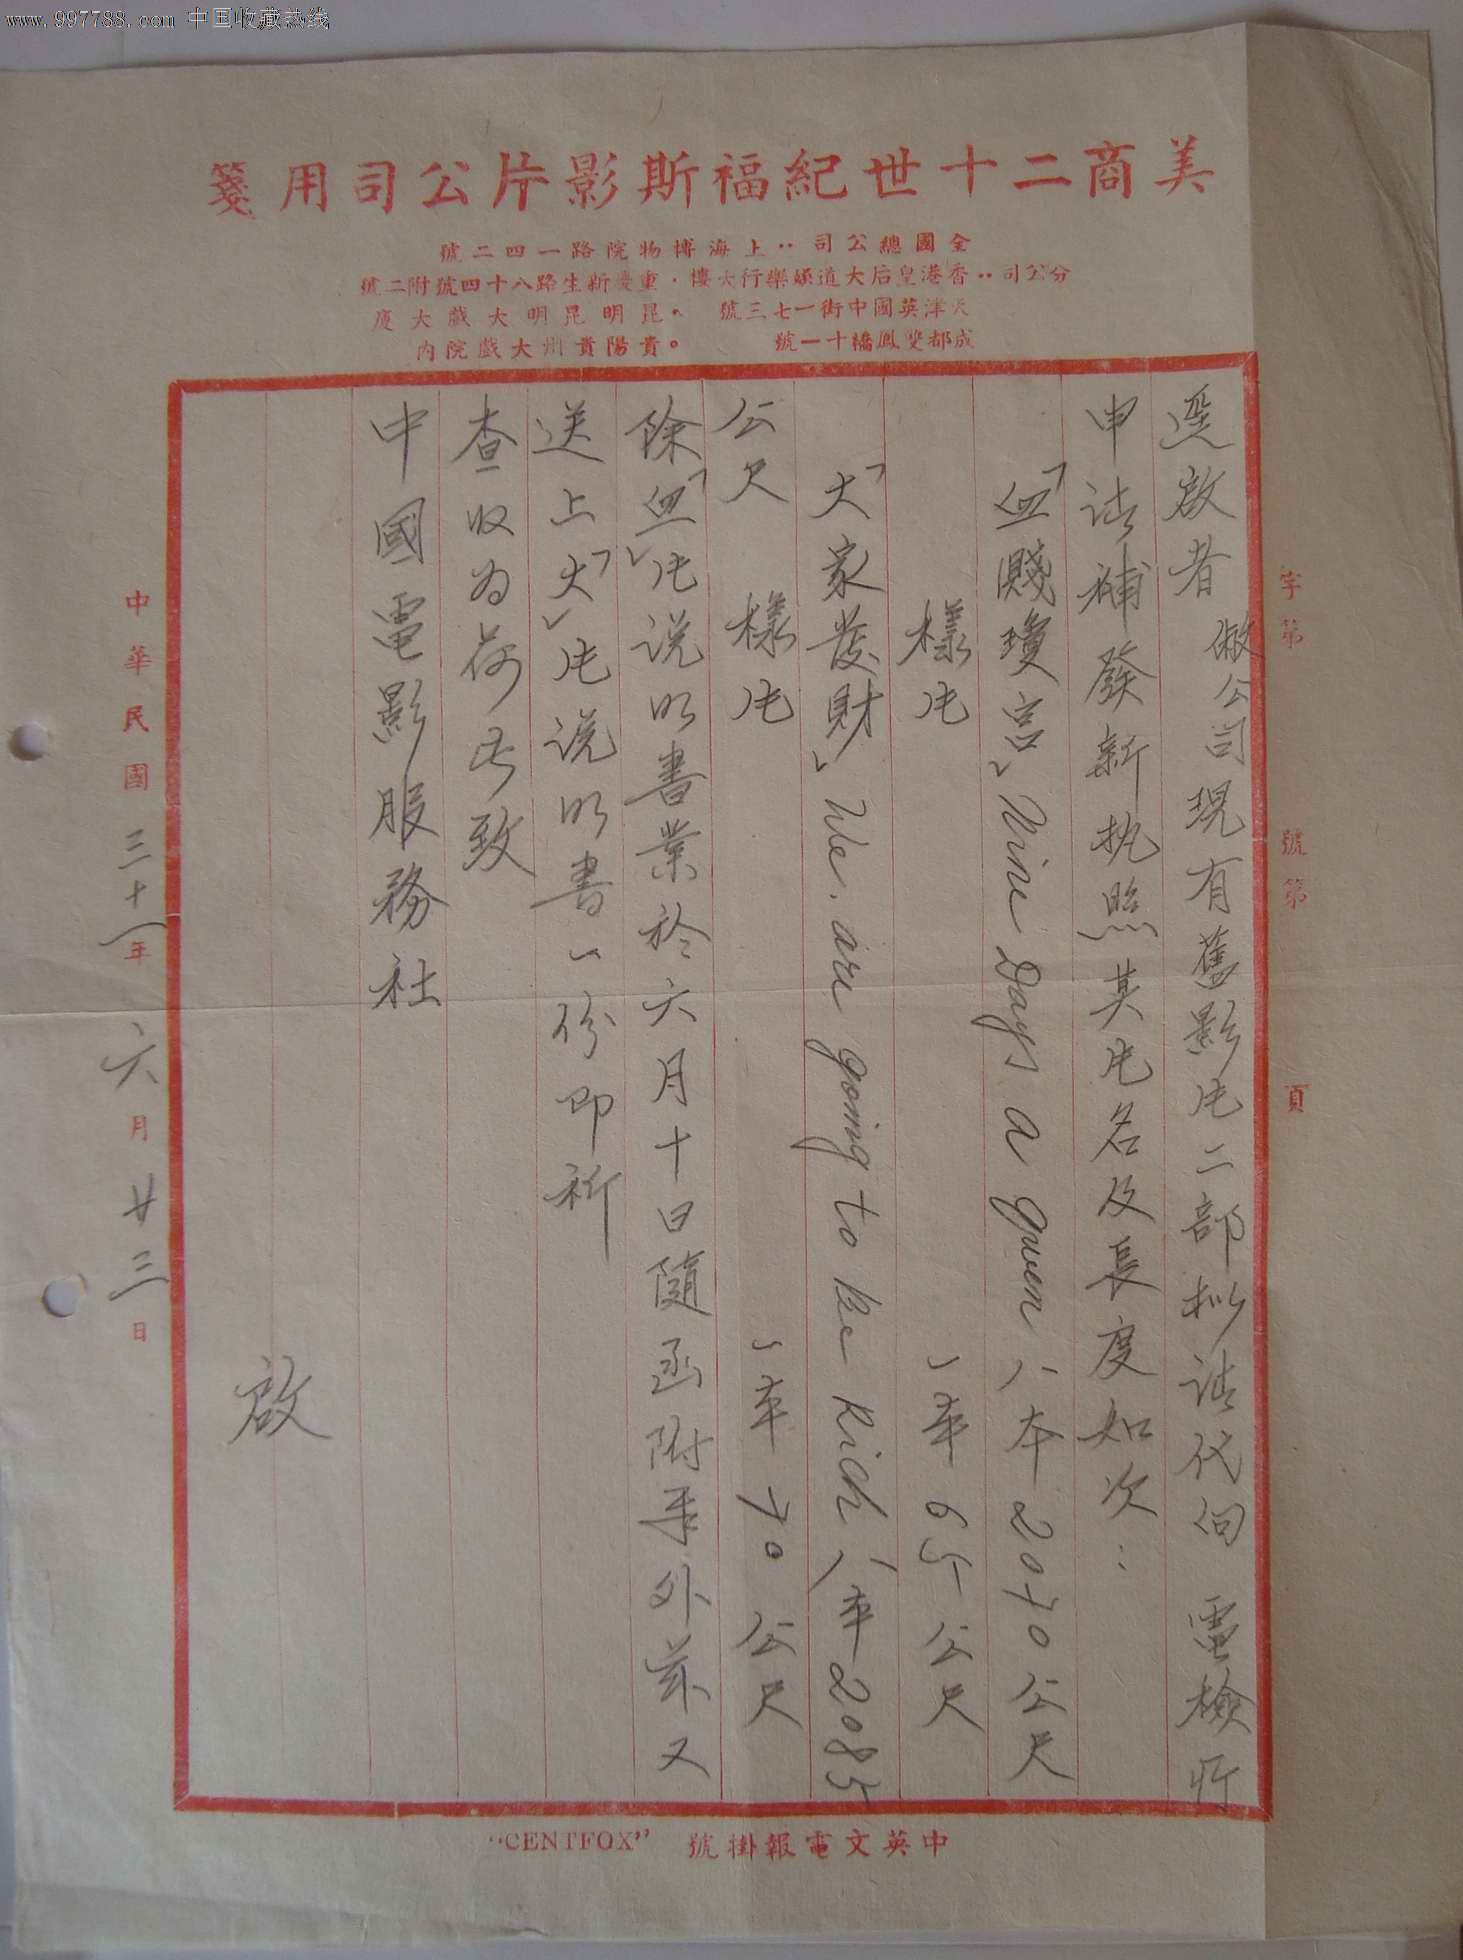 www.997788.com 中国收藏热线
美商二十世紀福斯影片公司用箋
全國總公司：上海博物院路一四二號
分公司：香港皇后大道娛樂行六樓．重慶新生路八十四號附二號
天津英國中街一七三號 。昆明昆明大戲大廈
成都雙鳳橋十一號 。貴陽貴州大戲院內
字第 號第 頁
逕啟者 敝公司現有舊影片二部拟請代向 電檢所
申請補發新执照其片名及長度如次：
「血濺瓊宮」Nine Days a queen 八本2070公尺
樣片 一本 65公尺
「大家發財」We are going to be Rich 八本2085
公尺 樣片 一本 70公尺
除「血」片说明書業於六月十日隨函附奉外茲又
送上「大」片说明書一份即祈
查收为荷此致
中國電影服務社
啟
中華民國三十一年六月廿三日
中英文電報掛號 "CENTFOX"